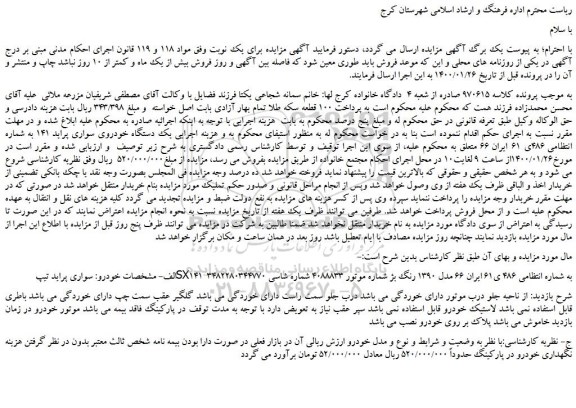 ریاست محترم اداره فرهنگ و ارشاد اسلامی شهرستان کرج
با سلام
با احترام؛ به پیوست یک برگ آگهی مزایده ارسال می گردد، دستور فرمایید آگهی مزایده برای یک نوبت وفق مواد ۱۱۸ و ۱۱۹ قانون اجرای احکام مدنی مبنی بر درج
آگهی در یکی از روزنامه های محلی و این که موعد فروش باید طوری معین شود که فاصله بین آگهی و روز فروش بیش از یک ماه و کمتر از ۱۰ روز نباشد چاپ و منتشر و
آن را در پرونده قبل از تاریخ ۱۴۰۰/۰۱/۲۶ به این اجرا ارسال فرمایند.
به موجب پرونده کلاسه ۹۷۰۶۱۵ صادره از شعبه ۴ دادگاه خانواده کرج لها: خانم سمانه شجاعی یکتا فرزند فضایل با وکالت آقای مصطفی شریفیان مزرعه ملائی علیه آقای
محسن محمدزاده فرزند همت که محکوم علیه محکوم است به پرداخت ۱۰۰ قطعه سکه طلا تمام بهار آزادی بابت اصل خواسته و مبلغ ۳۴۳/۳۹۸ ریال بابت هزینه دادرسی و
حق الوکاله وکیل طبق تعرفه قانونی در حق محکوم له و مبلغ پنج درصد محکوم به بابت هزینه اجرایی با توجه به اینکه اجرائیه صادره به محکوم علیه ابلاغ شده و در مهلت
مقرر نسبت به اجرای حکم اقدام ننموده است بنا به در خواست محکوم له به منظور استیفای محکوم به و هزینه اجرایی یک دستگاه خودروی سواری پراید ۱۴۱ به شماره
انتظامی ۴۸۶ی ۶۱ ایران ۶۶ متعلق به محکوم علیه، از سوی این اجرا توقیف و توسط کارشناس رسمی دادگستری به شرح زیر توصیف و ارزیابی شده و مقرر است در
مورخ۱۴۰۰/۰۱/۲۶از ساعت ۹ لغایت۱۰ در محل اجرای احکام مجتمع خانواده از طریق مزایده بفروش می رسد، مزایده از مبلغ ۵۲۰/۰۰۰/۰۰۰ ریال وفق نظریه کارشناسی شروع
می شود و به هر شخص حقیقی و حقوقی که بالاترین قیمت را پیشنهاد نماید فروخته خواهد شد ده درصد وجه مزایده فی المجلس بصورت وجه نقد یا چک بانکی تضمینی از
خریدار اخذ و الباقی ظرف یک هفته از وی وصول خواهد شد و پس از انجام مراحل قانونی و صدور حکم تملیک مورد مزایده بنام خریدار منتقل خواهد شد در صورتی که در
مهلت مقرر خریدار وجه مزایده را پرداخت ننماید سپرده وی پس از کسر هزینه های مزایده به نفع دولت ضبط و مزایده تجدید می گردد کلیه هزینه های نقل و انتقال به عهده
محکوم علیه است و از محل فروش پرداخت خواهد شد. طرفین می توانند ظرف یک هفته از تاریخ مزایده نسبت به نحوه انجام مزایده اعتراض نمایند که در این صورت تا
رسیدگی به اعتراض از سوی دادگاه مورد مزایده به نام خریدار منتقل نخواهد شد ضمنا طالبین به شرکت در مزایده می توانند ظرف پنج روز قبل از مزایده با اطلاع این اجرا از
مال مورد مزایده بازدید نمایند چنانچه روز مزایده مصادف با ایام تعطیل باشد روز بعد در همان ساعت و مکان برگزار خواهد شد
مال مورد مزایده و بهای آن طبق نظر کارشناس بدین شرح است:-
به شماره انتظامی ۴۸۶ ی ۶۱ ایران ۶۶ مدل ۱۳۹۰ رنگ بژ شماره موتور ۴۰۸۸۸۳۳ شماره شاسی SX۱۴۱۰۳۴۸۲۲۸۰۳۴۴۷۷۰الف- مشخصات خودرو: سواری پراید تیپ
شرح بازدید: از ناحیه جلو درب موتور دارای خوردگی می باشد درب جلو سمت راست دارای خوردگی می باشد گلگیر عقب سمت چپ دارای خوردگی می باشد باطری
قابل استفاده نمی باشد لاستیک خودرو قابل استفاده نمی باشد سپر عقب نیاز به تعویض دارد با توجه به مدت توقف در پارکینگ فاقد بیمه می باشد موتور خودرو در زمان
بازدید خاموش می باشد پلاک بر روی خودرو نصب می باشد
ج- نظریه کارشناسی:با نظر به وضعیت و شرایط و نوع و مدل خودرو ارزش ریالی آن در بازار فعلی در صورت دارا بودن بیمه نامه شخص ثالث معتبر بدون در نظر گرفتن هزینه
نگهداری خودرو در پارکینگ حدوداً ۵۲۰/۰۰۰/۰۰۰ ریال معادل ۵۲/۰۰۰/۰۰۰ تومان برآورد می گردد